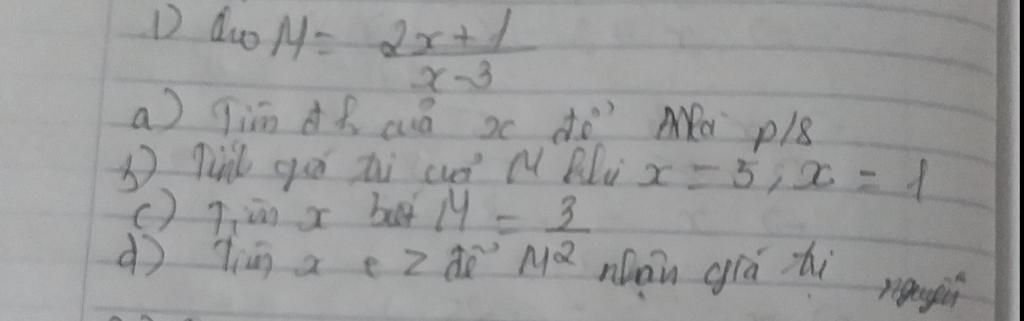 1) Cho M = 2x + 1 / x - 3
a) Tìm đk của x để M là p/s
b) Tính giá trị của M khi x = 5; x = 1
c) Tìm x biết M = 3
d) Tìm x ∈ Z để M² nhận giá trị nguyên